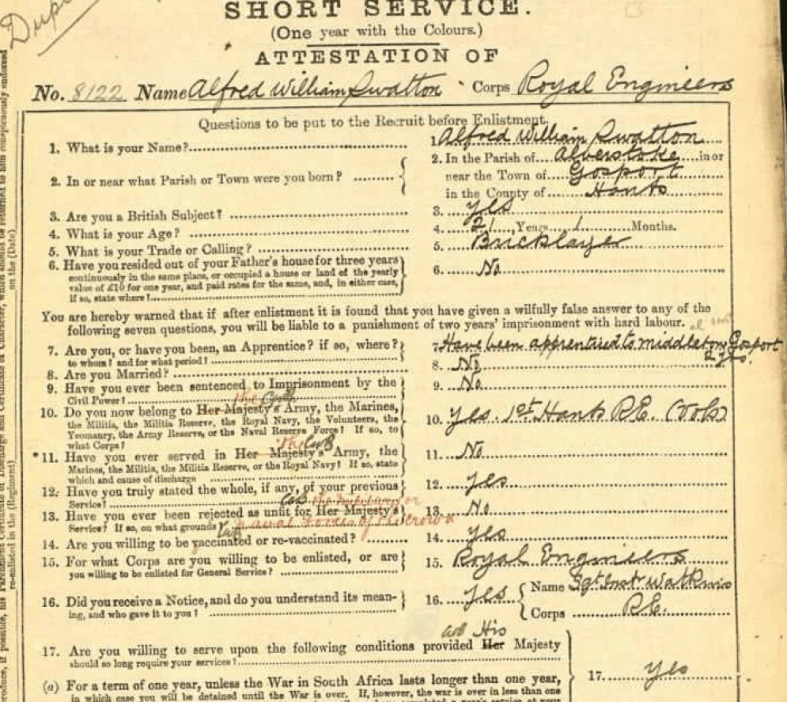 SHORT SERVICE.
(One year with the Colours.)
ATTESTATION OF
No. 8122 Name Alfred William Swatton Corps Royal Engineers
Questions to be put to the Recruit before Enlistment.
1. What is your Name? 1. Alfred William Swatton
2. In or near what Parish or Town were you born? 2. In the Parish of Alverstoke in or
near the Town of Gosport
in the County of Hants
3. Are you a British Subject? 3. Yes
4. What is your Age? 4. 21 Years 1 Months.
5. What is your Trade or Calling? 5. Bricklayer
6. Have you resided out of your Father's house for three years
continuously in the same place, or occupied a house or land of the yearly
value of £10 for one year, and paid rates for the same, and, in either case,
if so, state where? 6. No
You are hereby warned that if after enlistment it is found that you have given a wilfully false answer to any of the
following seven questions, you will be liable to a punishment of two years' imprisonment with hard labour.
7. Are you, or have you been, an Apprentice? if so, where? 7. Have been apprenticed to middleton Gosport
to whom? and for what period?
8. Are you Married? 8. No
9. Have you ever been sentenced to Imprisonment by the
Civil Power? 9. No
10. Do you now belong to Her Majesty's Army, the Marines,
the Militia, the Militia Reserve, the Royal Navy, the Volunteers, the
Yeomanry, the Army Reserve, or the Naval Reserve Force? If so, to
what Corps? 10. Yes. 1st Hants R.E. (Vols)
*11. Have you ever served in Her Majesty's Army, the
Marines, the Militia, the Militia Reserve, or the Royal Navy? If so, state
which and cause of discharge 11. No
12. Have you truly stated the whole, if any, of your previous
Service? 12. Yes
13. Have you ever been rejected as unfit for Her Majesty's
Service? If so, on what grounds 13. No
naval forces of the crown
14. Are you willing to be vaccinated or re-vaccinated? 14. Yes
15. For what Corps are you willing to be enlisted, or are
you willing to be enlisted for General Service? 15. Royal Engineers
16. Did you receive a Notice, and do you understand its mean-
ing, and who gave it to you? 16. Yes Name Sgt Inst Watkins
Corps R.E.
His
17. Are you willing to serve upon the following conditions provided Her Majesty
should so long require your services? 17. Yes
(a) For a term of one year, unless the War in South Africa lasts longer than one year,
in which case you will be detained until the War is over. If, however, the war is over in less than one